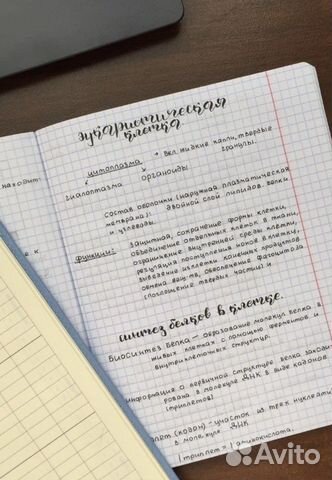 эукариотическая
клетка
цитоплазма + вкл. жидкие капли, твердые
гранулы.
гиалоплазма органоиды
Состав оболочки (наружная плазматическая
мембрана): двойной слой липидов. белки
и углеводы.
функции: Защитная, сохранение формы клетки,
объединение отдельных клеток в ткани,
ограничение внутренней среды клетки,
регуляция поступления ионов в клетку,
выведение из клетки конечных продуктов
обмена веществ, обеспечение фагоцитоза
(поглощение твердых частиц) и
находит-
е к
синтез белков в клетке.
Биосинтез белка - образование молекул белка в
живых клетках с помощью ферментов и
внутриклеточных структур.
Информация о первичной структуре белка
в молекуле ДНК в виде кодонов
(триплетов)
(кодон) - участок из трех
в молекуле ДНК
1 триплет = 1 аминокислота.
Avito